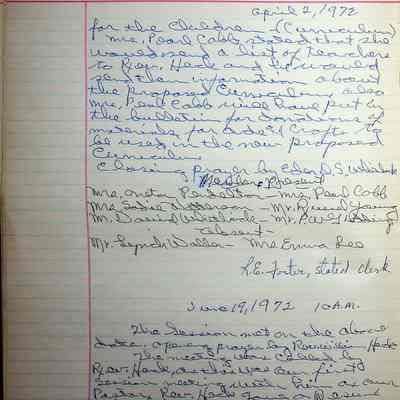 April 2, 1972
for the Children - (Curriculum)
Mrs. Pearl Cobb stated that she
would send a list of teachers
to Rev. Hank and he would
send the information about
the proposed Curriculum, also
Mrs. Pearl Cobb will have put in
the bulletin for donations of
materials for Arts & Crafts to
be used in the new proposed
Curriculum
Closing prayer by Elder S. Whitlock
Members Present
Mrs. Pendleton - Mrs. Pearl Cobb
Mrs. Sadie - Mr. Russell Young
Mr. David Whitlock - Mr. Paul
Absent -
Mr. Lynch Waller - Mrs Emma Lee
L.E. Foster, stated clerk
June 19, 1972 10 A.M.
The Session met on the above
date, opening prayer by Rev. Hank
The meeting was called by
Rev. Hank, as this was our first
session meeting with him as our
Pastor, Rev. Hank gave a